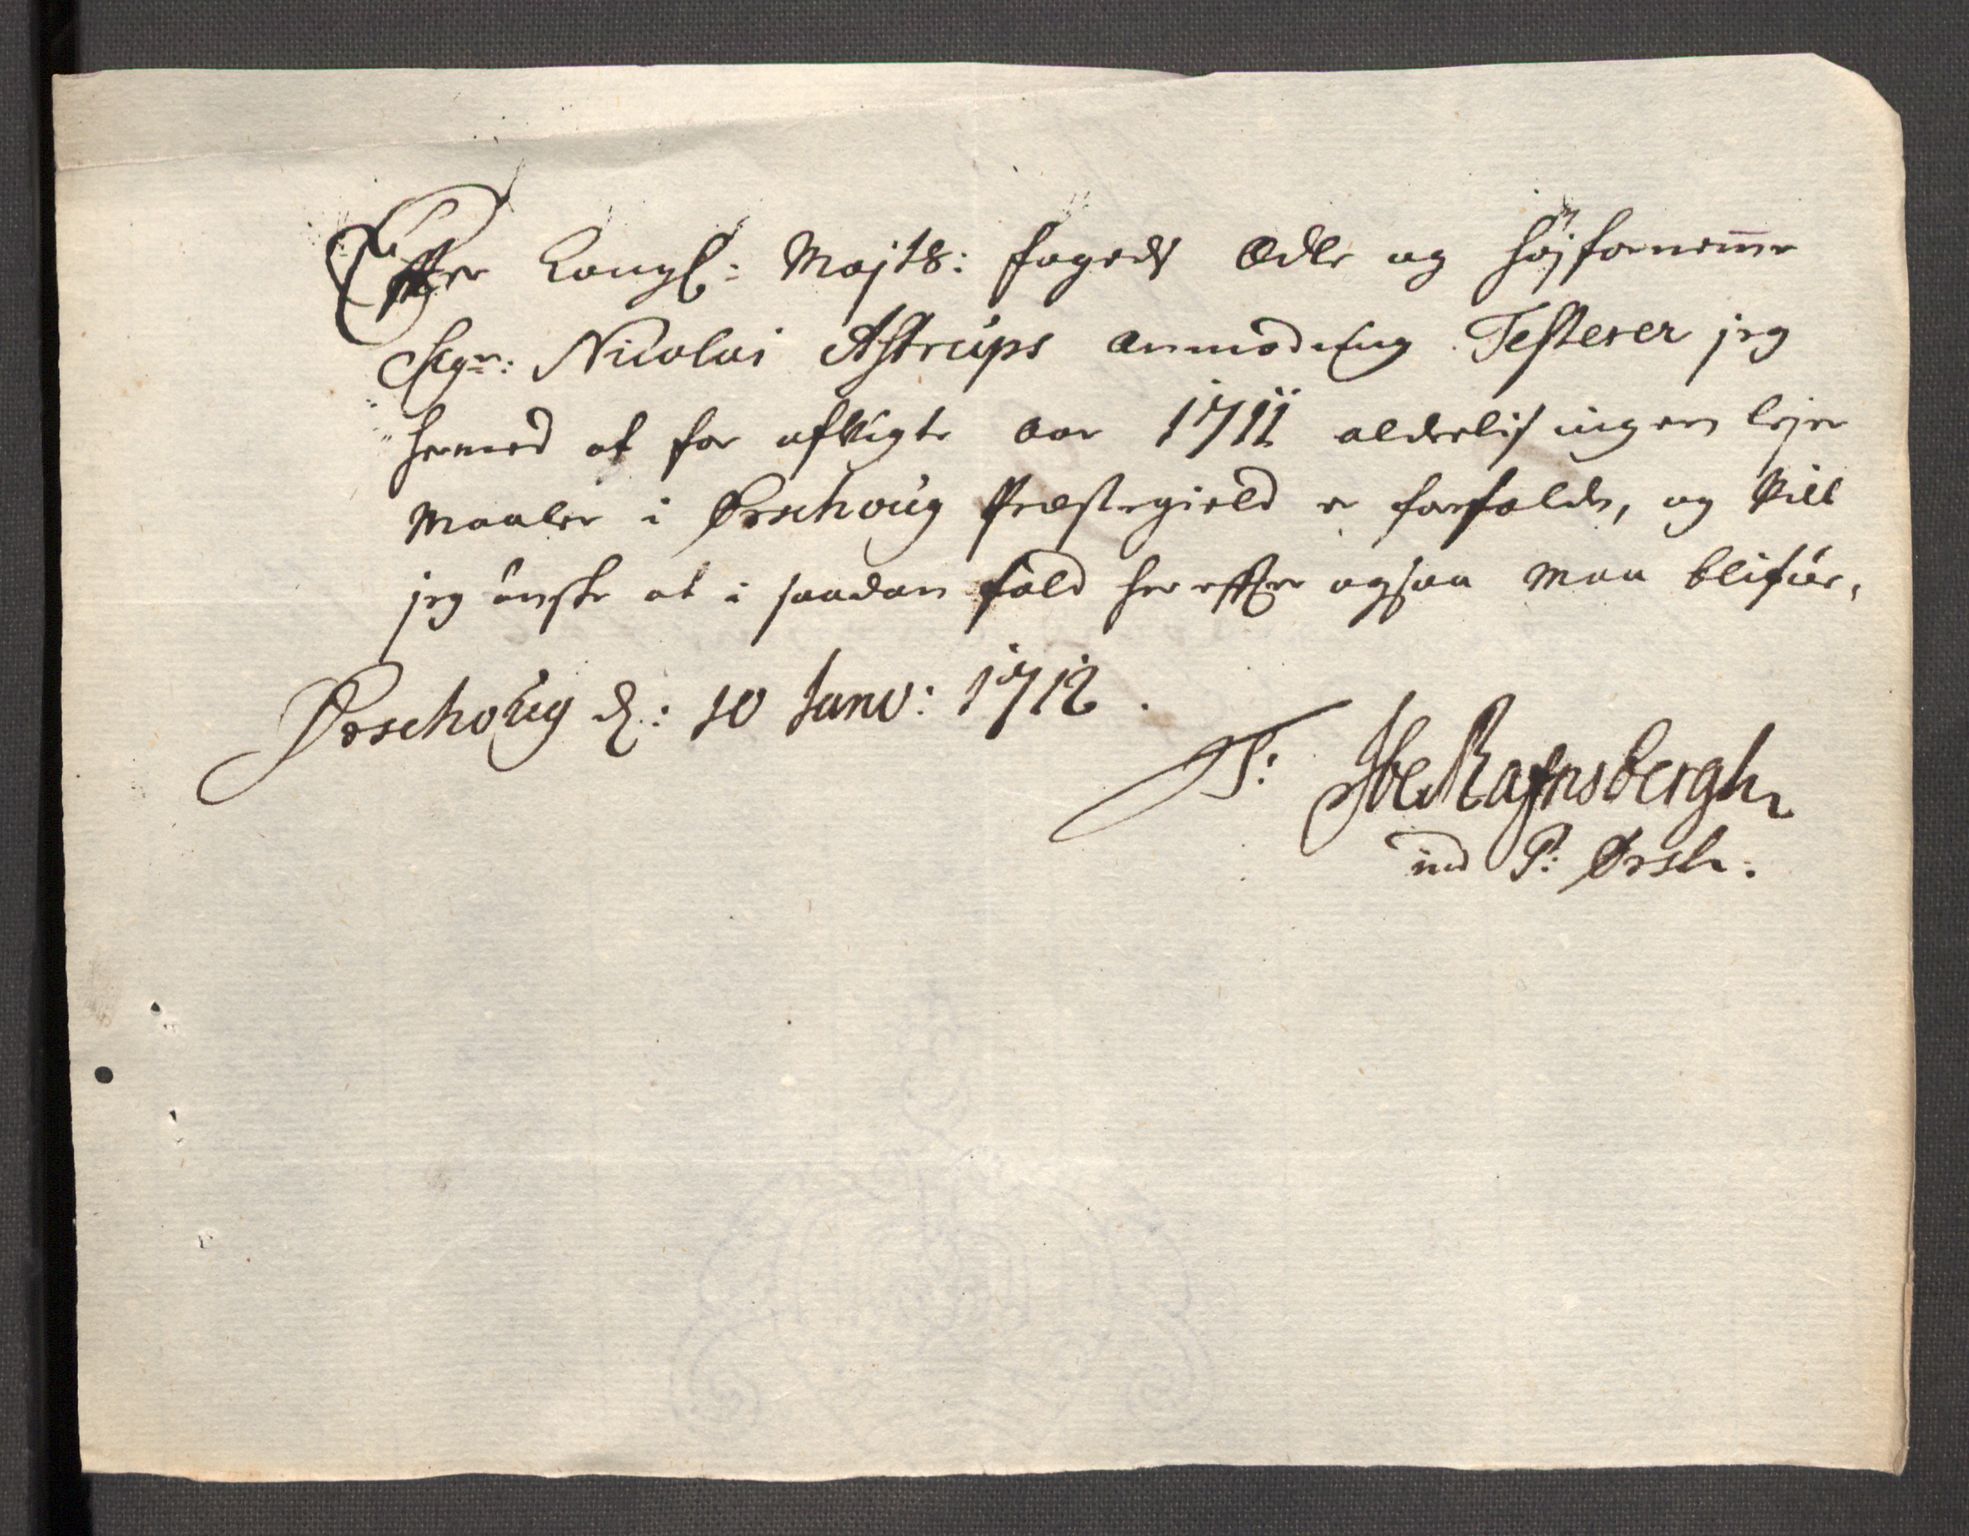 Effter Kongl: Majts: fogeds Ædle og Højfornemme
Sgr: Nicolai Astrups anmodning Testerer jeg
hermed at for afvigte aar 1711 alderlis ingen lejer
maaler i Ørschoug Præstegield er forfalden, og vill
jeg ønske at i saadan fald her effter ogsaa maa blifve,
Ørschoug d: 10 Janv: 1712.
Ibe Rafnsbergh
P: Ørsk: